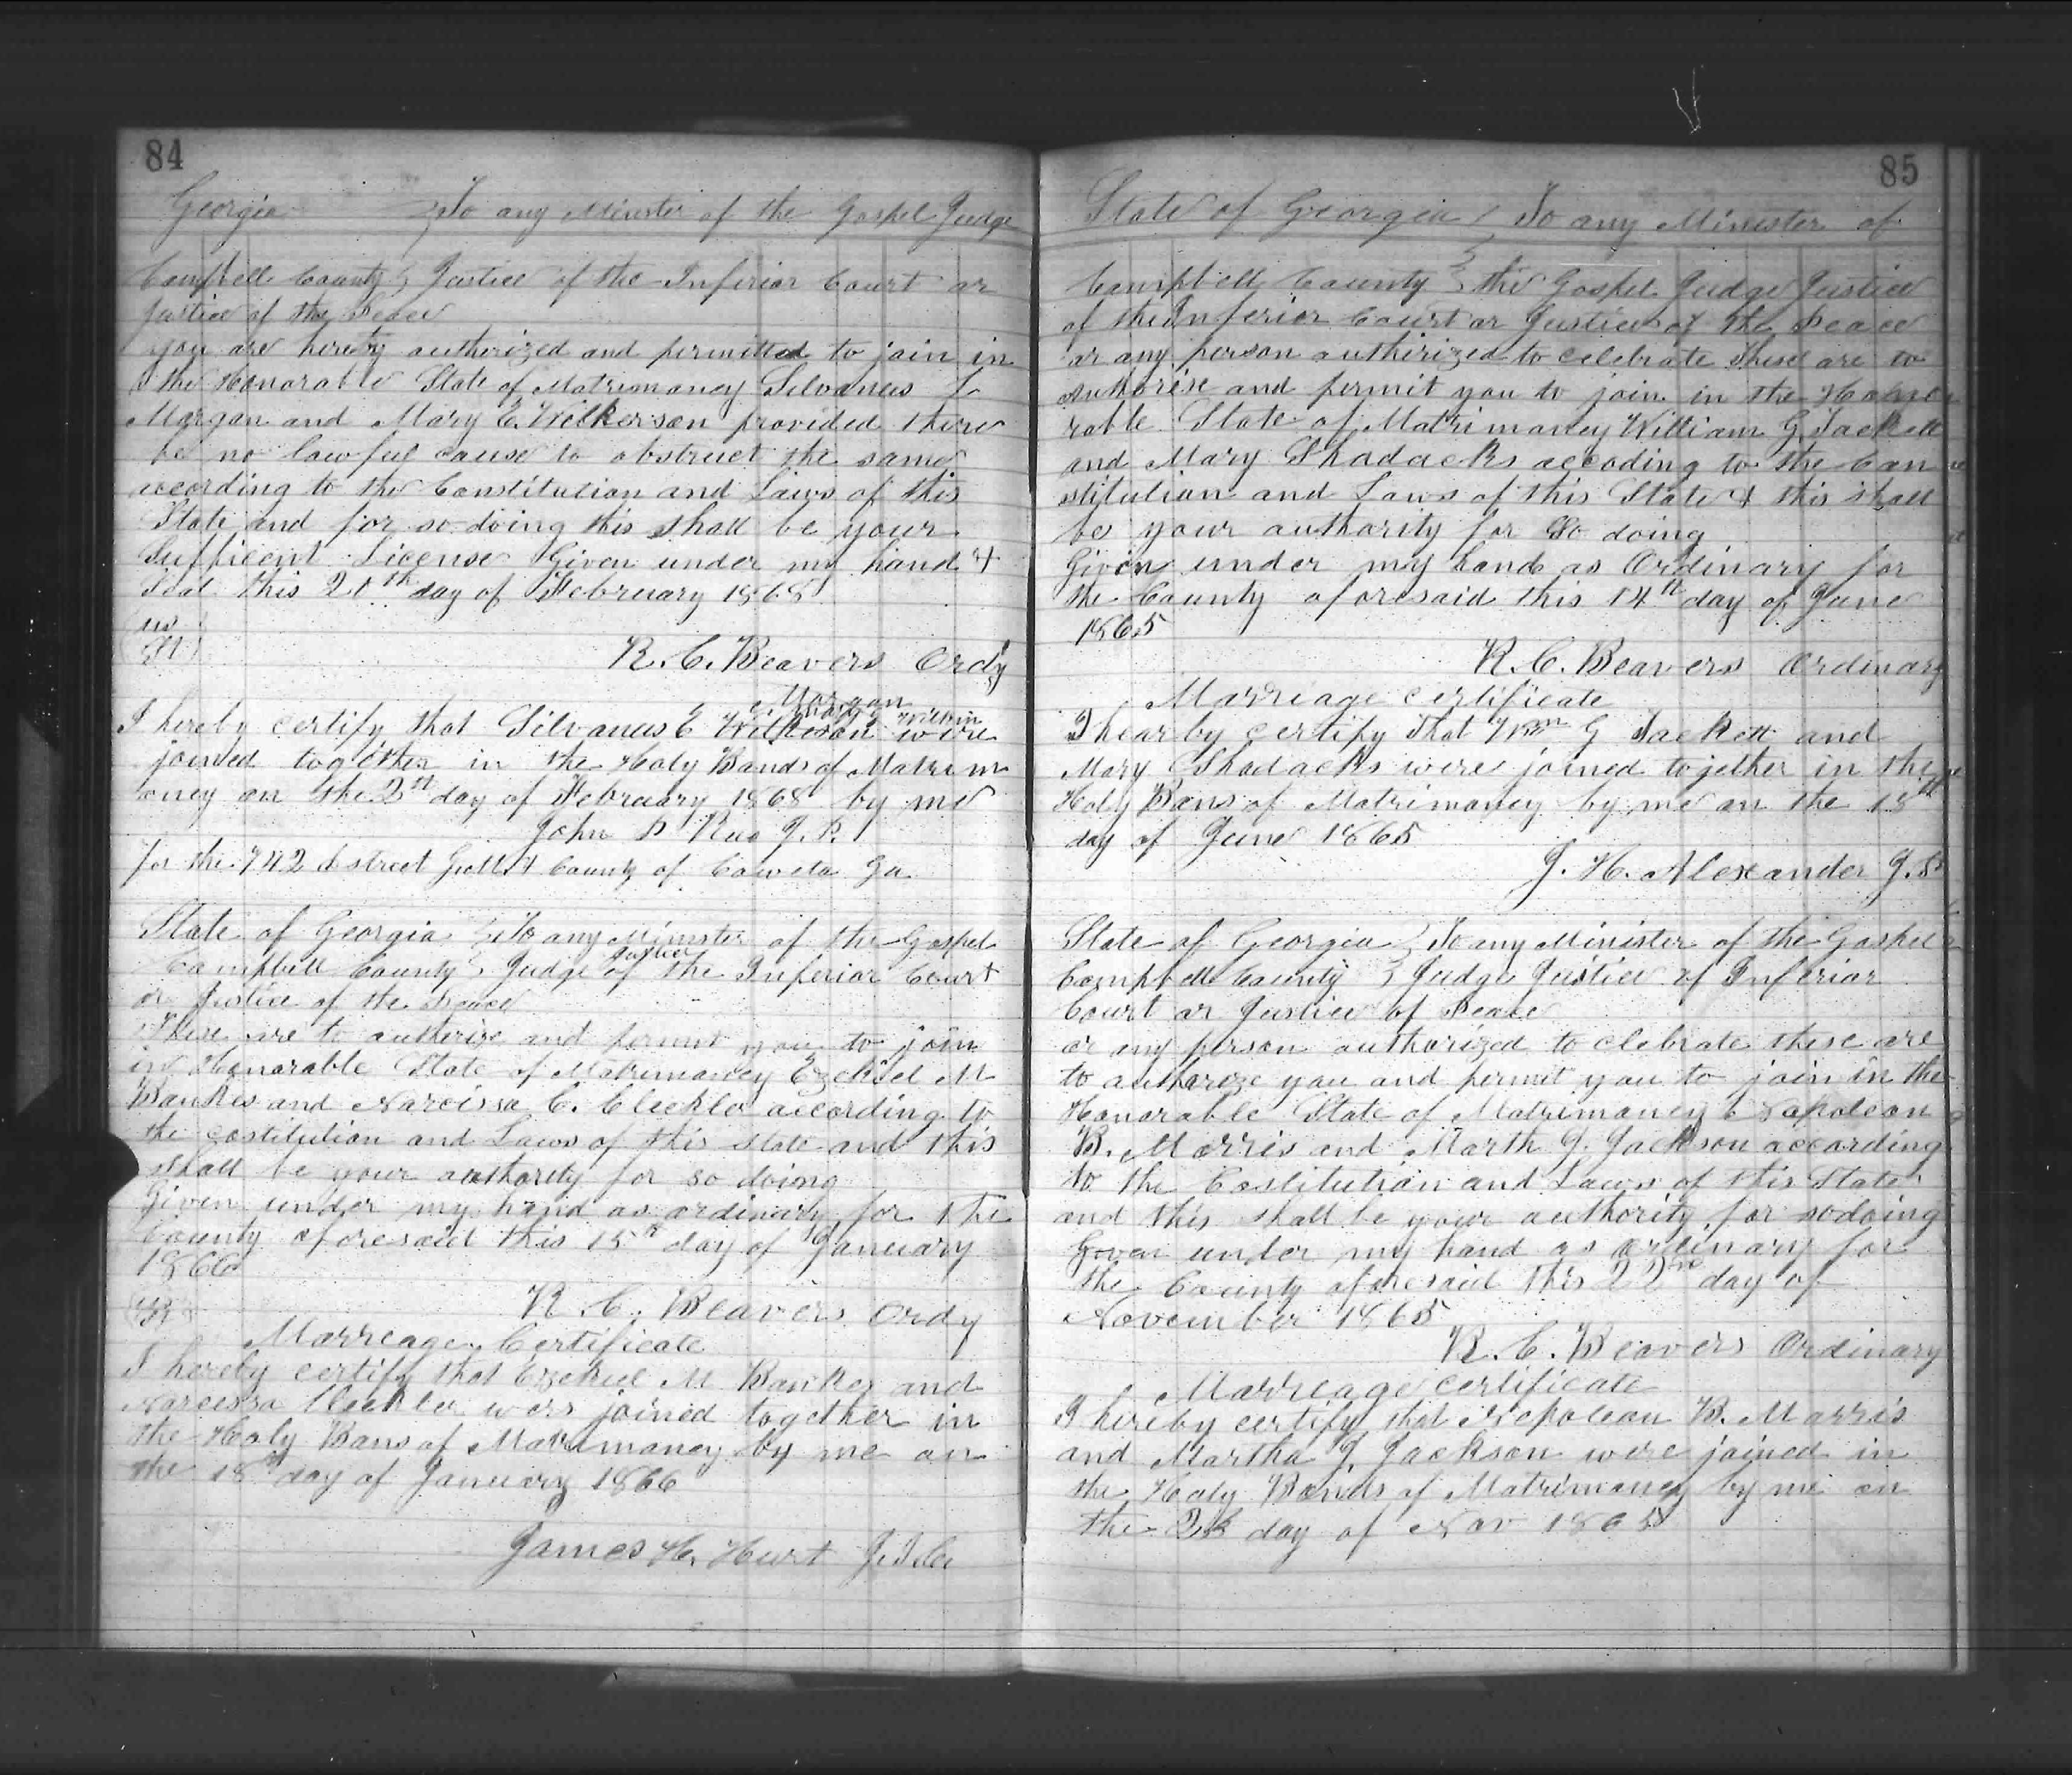 84
Georgia To any Minister of the Gospel Judge
Campbell County Justice of the Inferior Court or
Justice of the Peace
You are hereby authorized and permitted to join in
the Honorable State of Matrimoney Silvanus
Morgan and Mary E. Wilkerson provided there
be no lawful cause to obstruct the same
according to the Constitution and Laws of this
State and for so doing this shall be your
Sufficent License Given under my hand &
Seal this 20th day of February 1868
R. C. Beavers Ordy
Morgan
I hereby certify that Silvanus E were
joined together in the Holy Bands of Matrim
oney on the day of February 1868 by me
John J. P.
for the 742 destreet & County of Coweta Ga
State of Georgia To any Minister of the Gospel
Justice
Campbell County Judge of the Inferior Court
or Justice of the Peace
These are to autherize and permit you to join
in Honorable State of Matrimoney Ezekiel M
Bankes and Narcissa C. Cleckler according to
the costitution and Laws of this state and this
shall be your authority for so doing
Given under my hand as ordinary for the
County aforesaid this 15th day of January
1866
R. C. Beavers Ordy
Marreage Certificate
I hereby certify that Ezekiel M Bankes and
Narcissa Cleckler wers joined together in
the Holy Bans of Matrimoney by me on
the 18th day of January 1866
James H. Hurt
85
State of Georgia To any Minister of
Campbell County the Gospel Judge Justice
of the Inferior Court or Justices of the Peace
or any person authirized to celebrate These are to
authorise and permit you to join in the Honor
rable State of Matrimoney William G. Tackett
and Mary Shadacks accoding to the Con
stitution and Laws of this State & this shall
be your authority for So doing
Given under my hand as Ordinary for
the County aforesaid this 14th day of June
1865
R. C. Beavers Ordinary
Marriage certificate
I hearby certify That Wm G Tackett and
Mary Shadacks were joined together in the
Holy Bans of Matrimoney by me on the 15th
day of June 1865
J. H. Alexander J. P
State of Georgia To any Minister of the Gospel
Campbell County Judge Justice of Inferior
Court or Justice of Peace
or any person authorized to clebrate these are
to autharize you and permit you to join in the
Honorable State of Matrimoney Napoleon
B. Morris and Marth J. Jackson according
to the Costitution and Laws of this State
and this shall be your authority for sodoing
Given under my hand as ordinary for
the County aforesaid this 22nd day of
November 1865
R. C. Beavers Ordinary
Marreage certificate
I hereby certify that Nepoleon B. Marris
and Martha J. Jackson were joined in
the Holy Bands of Matrimoney by me on
the day of Nov 1865